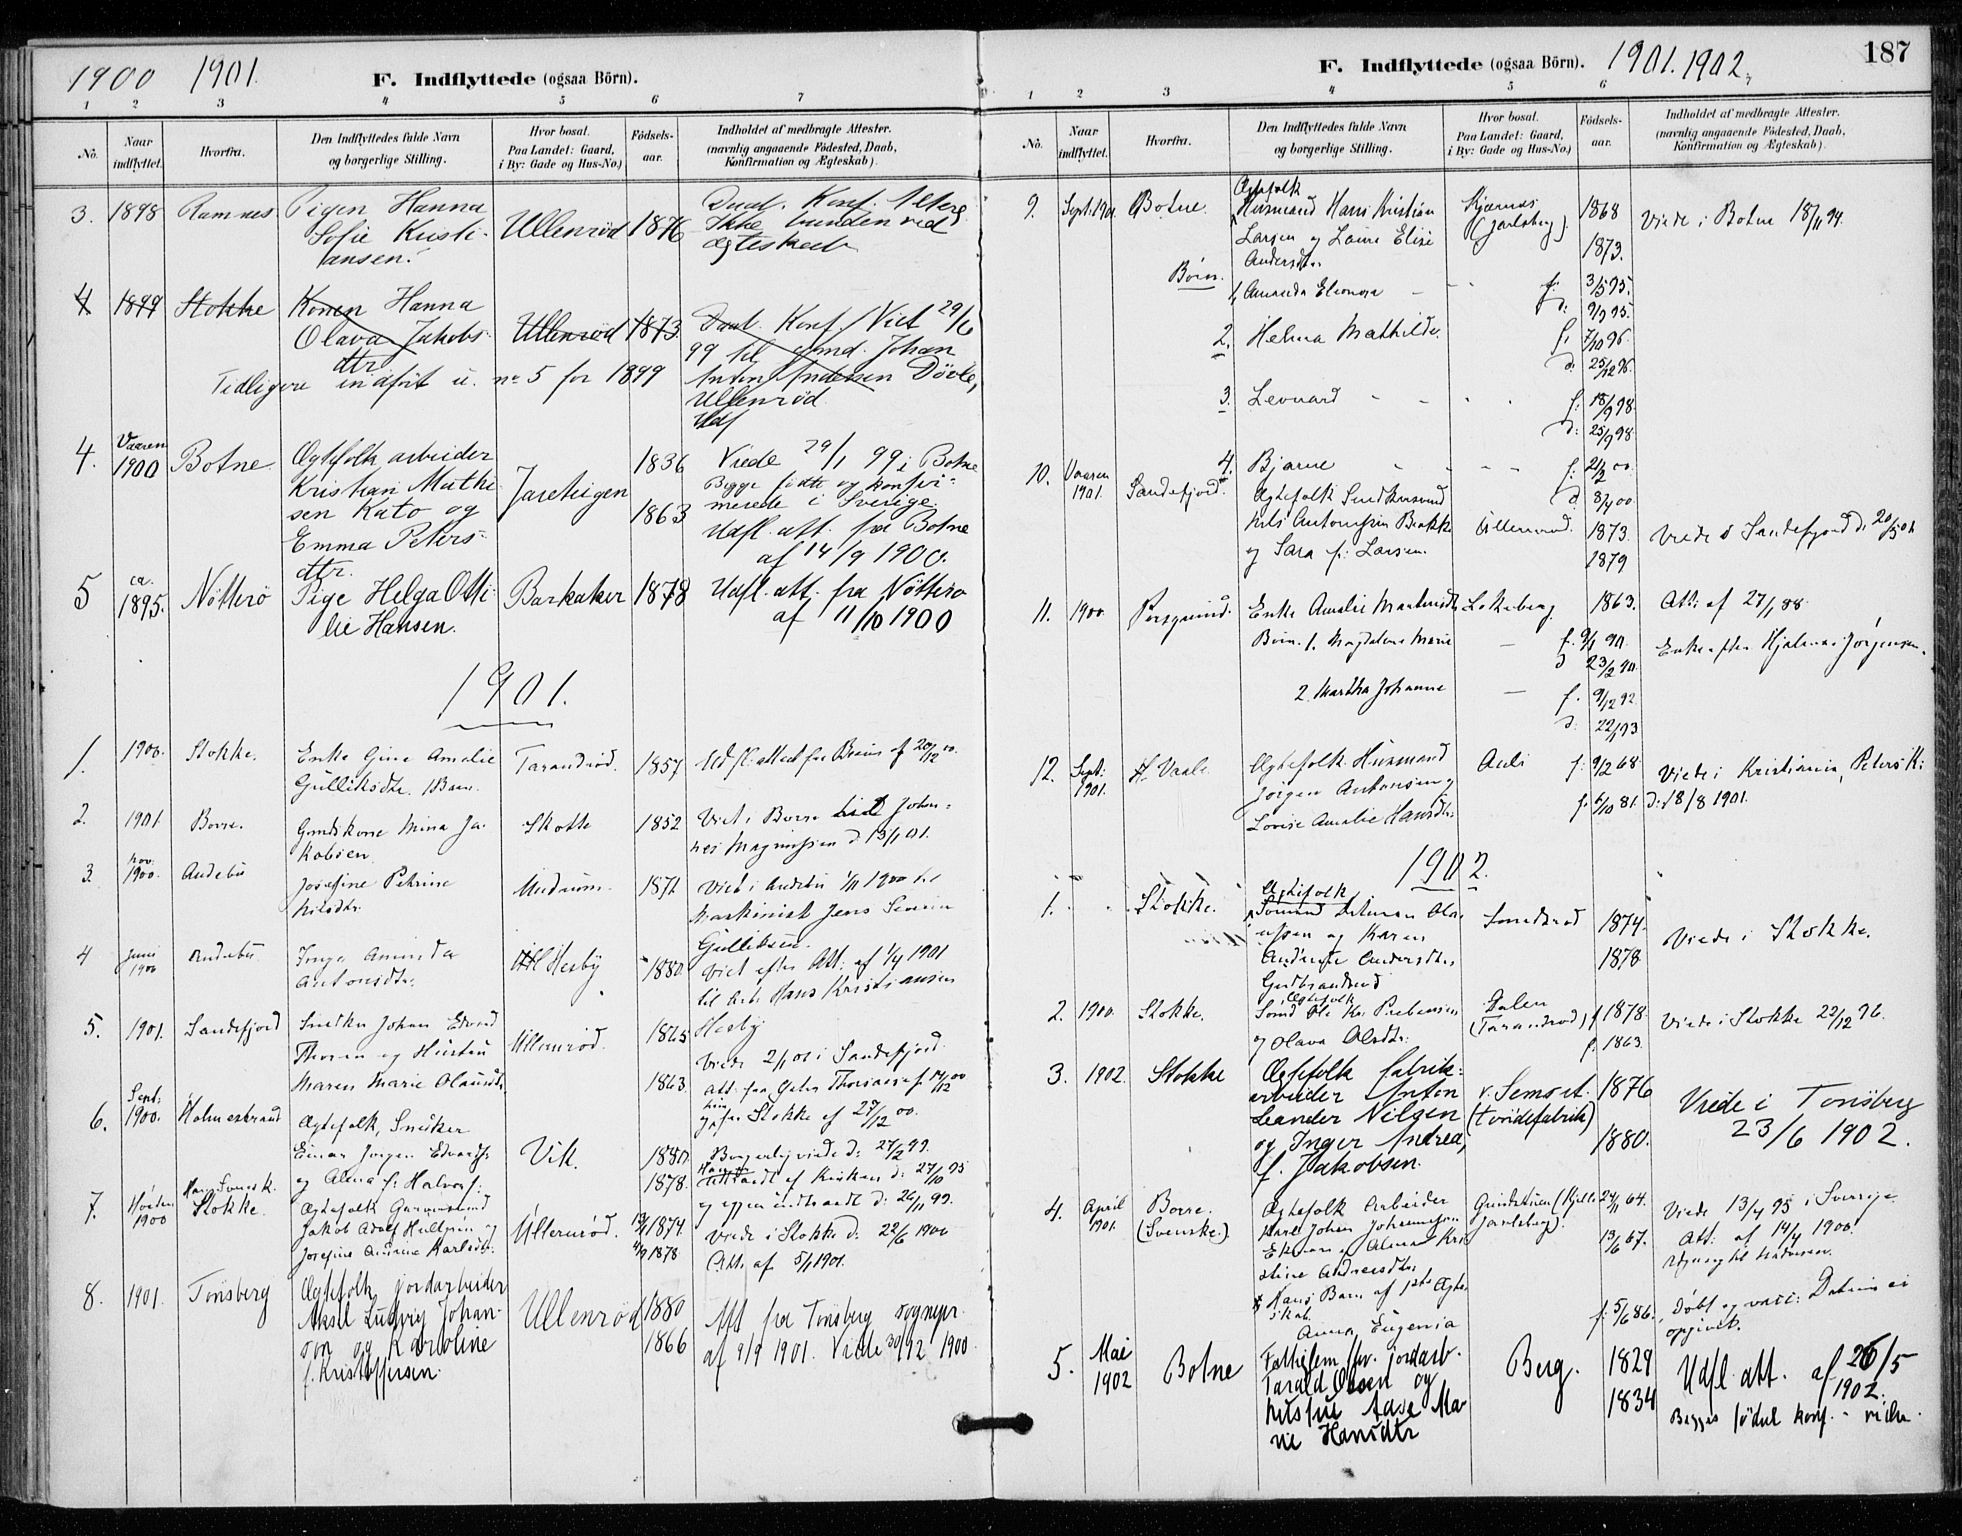 1900 1901.
F. Indflyttede (ogsaa Börn).
1 2 3 4 5 6 7
No.
Naar indflyttet.
Hvorfra.
Den Indflyttedes fulde Navn og borgerlige Stilling.
Hvor bosat. Paa Landet: Gaard, i By: Gade og Hus-No.)
Födsels-aar.
Indholdet af medbragte Attester. (navnlig angaaende Födested, Daab, Konfirmation og Ægteskab)
3. 1898 Ramnes Pigen Hanna Ullenröd 1876 Daab. Konf. Attest
Sofie Kristi- Ikke bunden ved
ansen. ægteskab
4 1899 Stokke Konen Hanna Ullenröd 1873. Daab. Konf. Viet 29/6
Olava Jakobs- 99 til gmd. Johan
dtr Anton Andersen Dövle,
Tidligere indfört u. nr 5 for 1899 Ullenröd
Udf
4. Vaaren 1900 Botne Ægtefolk arbeider Jareteigen 1836 Viede 29/1 99 i Botne
Kristian Mathi- Begge födte og konfir-
sen Kato og 1863 merede i Sverige
Emma Peters- Udfl. att. fra Botne
dtr. af 14/9 1900.
5 ca. 1895. Nötterö Pige Helga Otti- Barkaker 1878 Udfl. att. fra Nötterö
lie Hansen. af 11/10 1900
1901.
1. 1900. Stokke. Enke Gina Amalie Tarandröd. 1857 Udfl. attest fra af 20/12 00.
Gulliksdtr. 1 Barn.
2. 1901 Borre. Gmdskone Mina Ja- Skotte 1852 Viet i Borre Johan-
kobsen nes Magnussen d. 13/1 01.
3. nov. 1900. Andebu Josefine Petrine 1872 Viet i Andebu 1/11 1900 til
Nilsdtr. Maskinist Jens Severin
Gulliksen.
4 juni 1900 Andebu Inga Aminda Hesby 1880. Viet efter Att. af 1/4 1901
Antonsdtr. til Arb. Hans Kristiansen
Hesby
5. 1901. Sandefjord Snedker Johan Edvard Ullenröd. 1865
Thorsen og Hustru Viede 2/1 01 i Sandefjord.
Maren Marie Olausdtr. 1863 Att. fra Thorsen af 14/12 00
og fra Stokke af 27/12 00.
6. Sept: 1900. Holmestrand Ægtefolk, Snedker Vik. 1880.
Einar Jörgen Edvards. Borgerlig viede d: 27/2 99.
og Alma f. Halvors. 1878. udtraadt af Kirken d: 27/10 95
og igjen indtraadt d: 26/11 99.
7. Hösten 1900 Stokke. Ægtefolk Ullenröd. 1874. Viede i Stokke d: 22/6 1900
Jakob Adolf og
Josefine Andrine Karlsdtr. 4/9 1878 Att. af 5/1 1901.
8. 1901. Tönsberg Ægtefolk jordarbeider Ullenröd 1880 Att fra Tönsberg sognepr.
Aksel Ludvig Johan- 1866 af 9/9 1901. Viede 30/12 1900.
son og Karoline
f. Kristoffersen.
F. Indflyttede (ogsaa Börn). 1901. 1902. 187
1 2 3 4 5 6 7
No.
Naar indflyttet.
Hvorfra.
Den Indflyttedes fulde Navn og borgerlige Stilling.
Hvor bosat. Paa Landet: Gaard, i By: Gade og Hus-No.)
Födsels-aar.
Indholdet af medbragte Attester. (navnlig angaaende Födested, Daab, Konfirmation og Ægteskab)
9. Sept. 1901. Botne. Ægtefolk
Husmand Hans Kristian Kjærnes 1868 Viede i Botne 18/11 94.
Larsen og Laura Elise (Jarlsberg). 1873.
Andersdtr.
Börn. 1. Amanda Eleonora f: 3/5 95.
d: 9/9 95.
2. Helma Mathilde f: 7/10 96.
d: 25/12 96.
3. Leonard f: 18/9 98.
d: 25/9 98.
4. Bjarne f: 21/2 00.
d 8/4 00.
10. Vaaren 1901. Sandefjord. Ægtefolk Snedkersvend
Nils Antonissen Brekke Ullenröd. 1873. Viede i Sandefjord d. 20/5 01
og Sara f: Larsen. 1879
11. 1900. Porsgrund. Enke Amalie Martinsdtr Lokeberg 1863. Att. af 27/1 88.
Börn. 1. Magdalena Marie f. 9/1 90. Enke efter Hjalmar Jörgensen.
d 23/2 90.
2. Martha Johanne f. 9/12 92
d. 22/1 93
12. Sept: 1901. Vaale Ægtefolk Husmand Auli f: 9/2 68. Viede i Kristiania, Petersk:
Jörgen Antonsen og f. 6/10 81. d: 18/8 1901.
Lovise Amalie Hansdtr.
1902.
1. Stokke. Ægtefolk
Sömand Olau- 1874. Viede i Stokke.
ussen og Karen 1878
Andrine Andersdtr,
2. 1900. Stokke. Ægtefolk
Sömd Ole Kr. Prebensen Dalen (Tarandröd) f 1878. Viede i Stokke 23/12 96.
og Olava Olsdtr. f: 1863.
3. 1902. Stokke Ægtefolk fabrik- v. Semsst. 1876 Viede i Tönsberg
arbeider Anton (tvödefabrik) 23/6 1902.
Leander Nilsen
og Inger Andrea, 1880.
f. Jakobsen.
4. April 1901. Borre. (Svenske.) Ægtefolk Arbeider Jarlsberg). 24/11 64. Viede 13/4 95 i Sverige.
Karl Johan Johannesson Att. af 14/4 1900.
Ekman og Alma Kri- 13/6 67.
stine Andreasdtr.
Hans Barn af 1ste Ægte-
skab.
Anna Eugenia f: 5/6 86. Döbt og vacc: Datum ei
opgivet.
5. Mai 1902 Botne Fattiglem fhv. jordarb. Berg. 1829 Udfl. att. af 26/5
Tarald Olsen og 1834 1902.
hustru Aase Ma- Begges födsel konf. - vielse.
rie Hansdtr